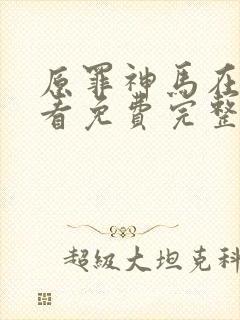 原罪神马在
看免费完整
超级大坦克科